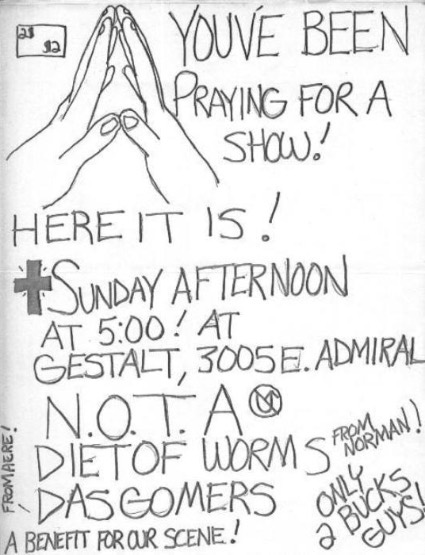 2$ $2
YOU'VE BEEN
PRAYING FOR A
SHOW!
HERE IT IS!
SUNDAY AFTERNOON
AT 5:00! AT
GESTALT, 3005 E. ADMIRAL
N.O.T. A
DIET OF WORMS FROM NORMAN!
DAS GOMERS
FROM HERE!
ONLY
2 BUCKS
GUYS!
A BENEFIT FOR OUR SCENE!